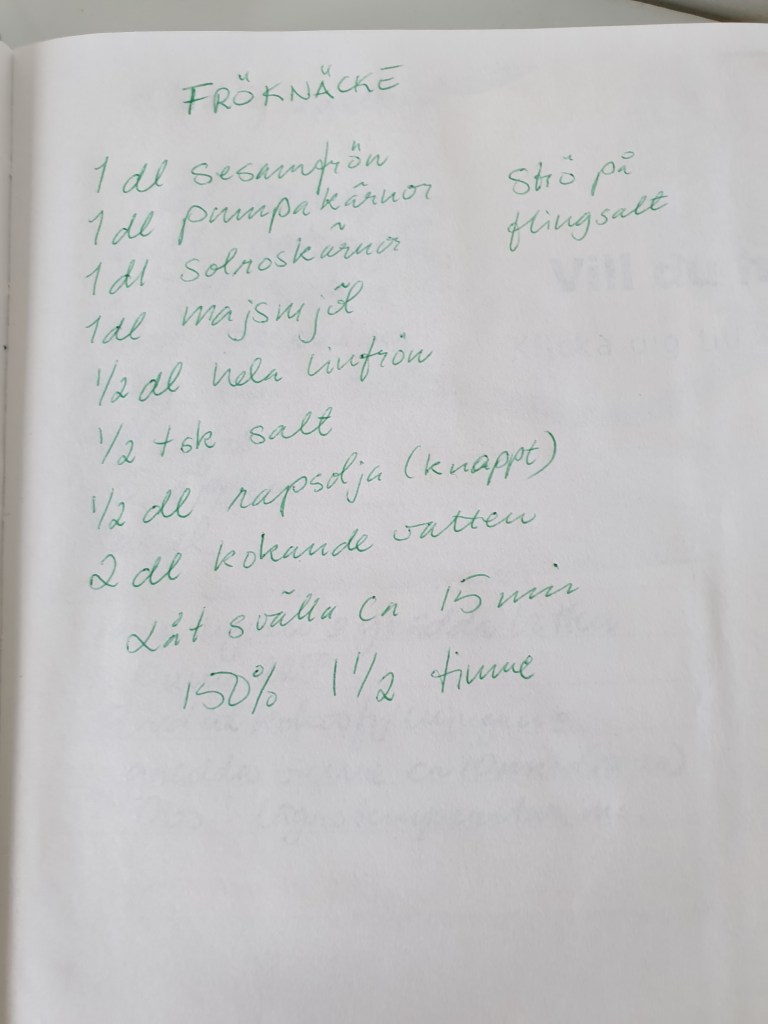 FRÖKNÄCKE
1 dl sesamfrön
1 dl pumpakärnor
1 dl solroskärnor
1 dl majsmjöl
1/2 dl hela linfrön
1/2 tsk salt
1/2 dl rapsolja (knappt)
2 dl kokande vatten
Låt svälla ca 15 min
150% 1 1/2 timme
Strö på
flingsalt
Vill du